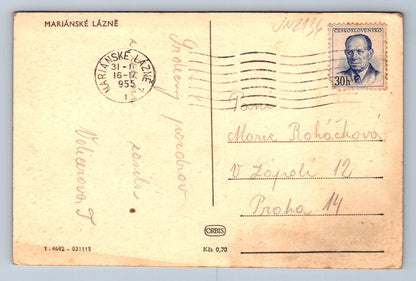 MARIÁNSKÉ LÁZNĚ
MARIÁNSKÉ LÁZNĚ
31-
16-
955
ČESKOSLOVENSKO
30h
Srdečný pozdrav
zasílá
Paní
Marie Roháčková
V Zápolí 12
Praha 14
ORBIS
1 - 4682 - 031115
Kčs 0,70